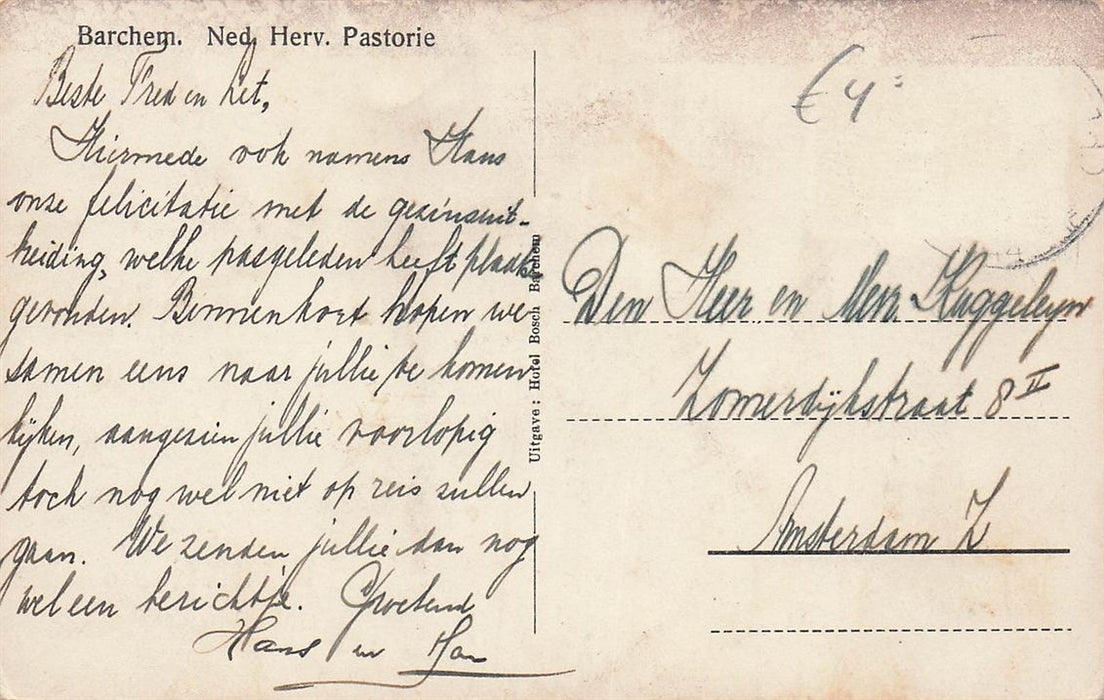 Barchem. Ned. Herv. Pastorie
Beste Fred en Het,
Hiermede ook namens Hans
onze felicitatie met de gezinsuit-
breiding, welke pasgeleden heeft plaats
gevonden. Binnenkort hopen we
samen eens naar jullie te komen
kijken, aangezien jullie voorlopig
toch nog wel niet op reis zullen
gaan. We zenden jullie dan nog
wel een berichtje. Groetend
Hans en
Uitgave: Hotel Bosch Barchem
€ 4
Den Heer en Mevr Kuggeleyn
Zomerdijkstraat 8 II
Amsterdam Z